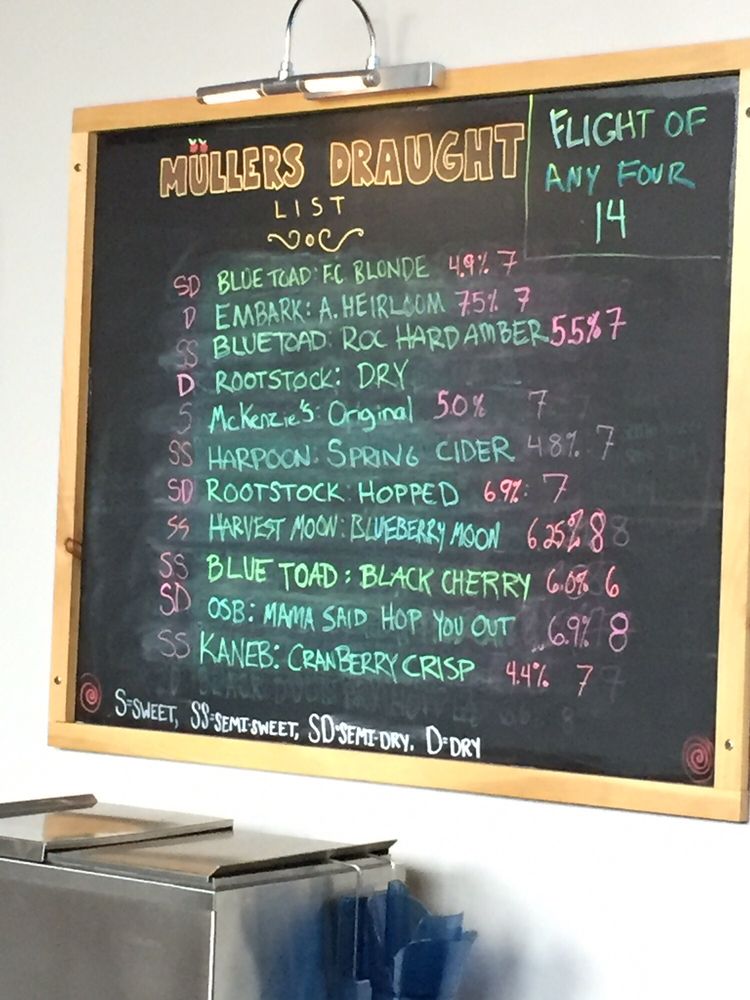 MÜLLERS DRAUGHT
LIST
FLIGHT OF
ANY FOUR
14
SD BLUE TOAD: F.C. BLONDE 4.9% 7
D EMBARK: A. HEIRLOOM 7.5% 7
SS BLUE TOAD: ROC HARD AMBER 5.5% 7
D ROOTSTOCK: DRY
S McKenzie's: Original 5.0% 7
SS HARPOON: SPRING CIDER 4.8% 7
SD ROOTSTOCK: HOPPED 6.9% 7
SS HARVEST MOON: BLUEBERRY MOON 6.25% 8
SS BLUE TOAD: BLACK CHERRY 6.0% 6
SD OSB: MAMA SAID HOP YOU OUT 6.9% 8
SS KANEB: CRANBERRY CRISP 4.4% 7
S=SWEET, SS=SEMI-SWEET, SD=SEMI-DRY. D=DRY